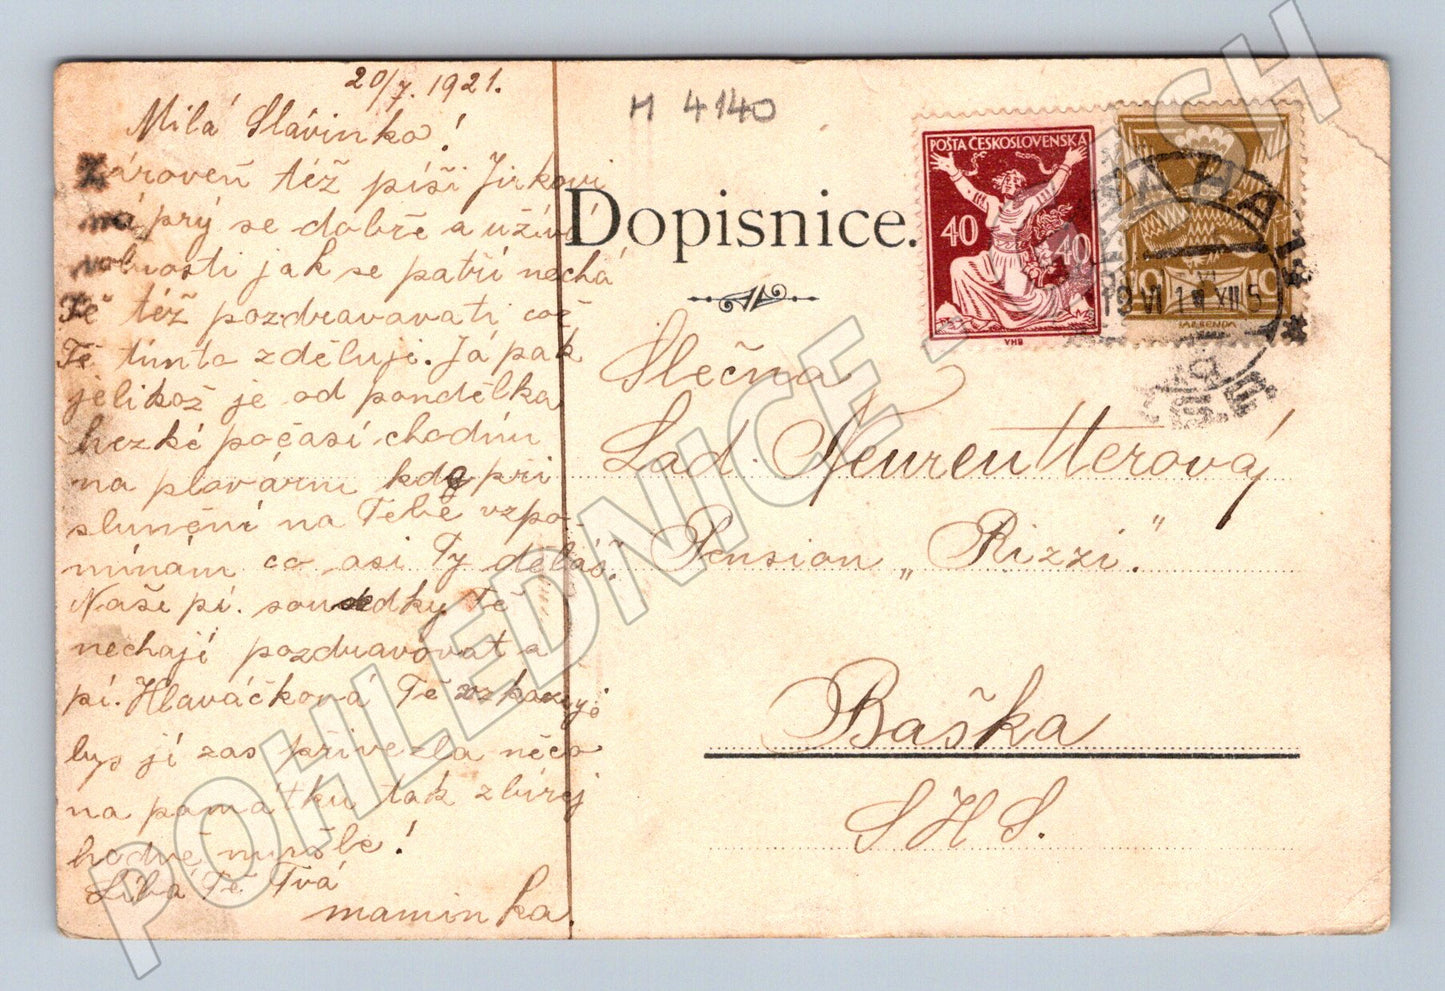 20/7. 1921.
Milá Slávinko!
Zároveň též píši Jirkovi
má prý se dobře a užívá
volnosti jak se patří nechá
Tě též pozdravovati což
Tě tímto zděluji. Já pak
jelikož je od pondělka
hezké počasí chodím
na plovárnu kdy při
slunění na Tebe vzpo-
mínám co asi Ty děláš?
Naše pí. sousedky Tě
nechají pozdravovat a
pí. Hlaváčková Tě vzkazuje
bys jí zas přivezla něco
na památku tak zbírej
hodně mušle!
Líbá Tě Tvá
maminka.
M 4140
Dopisnice.
POŠTA ČESKOSLOVENSKÁ
40 40
VHB
10 10
PRAHA
Slečna
Lad. Neureutterová
Pension „Rizzi."
Baška
S H S.
POHLEDNICE - CASH